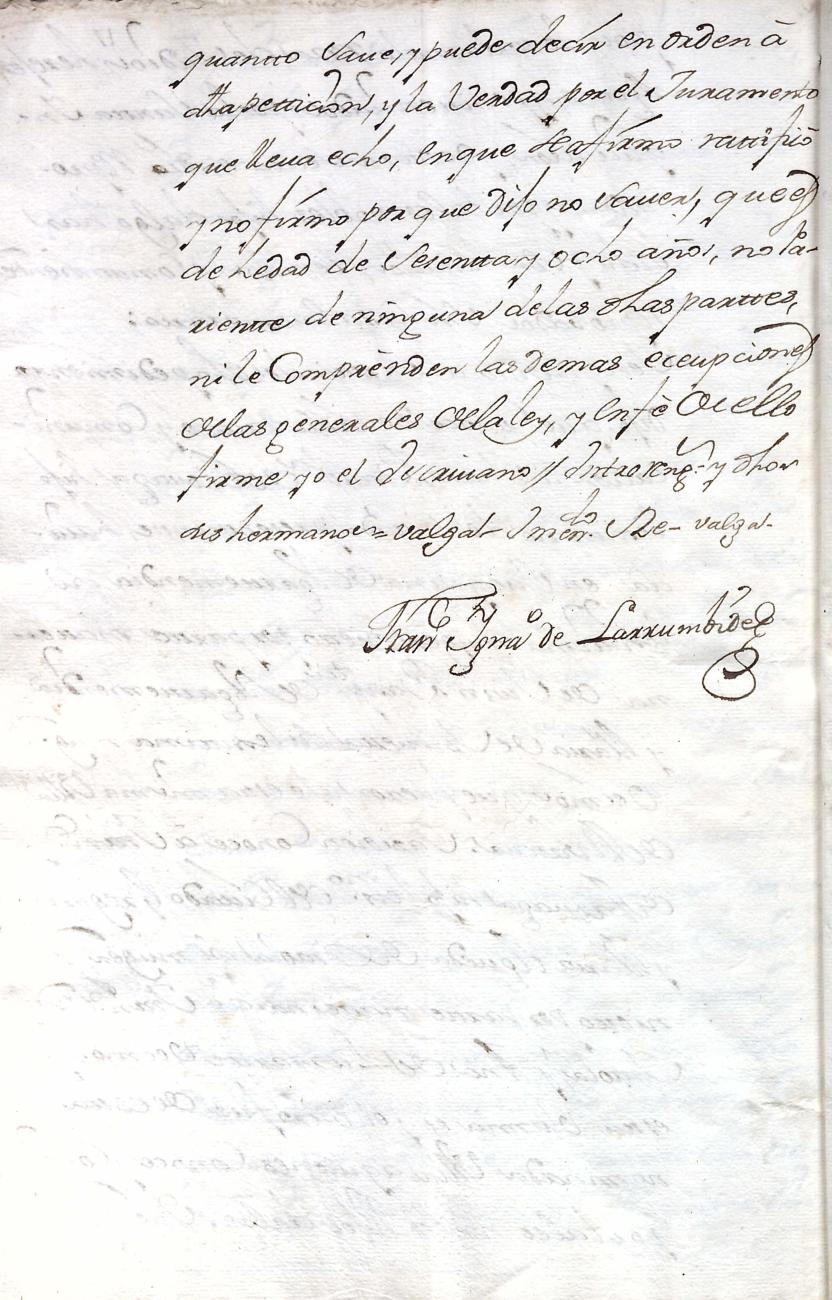 quantto Save, y puede decir en orden â
dha petticion, y la Verdad por el Juramento
que lleva echo, en que se afirmo rattifico
y no firmo por que dijo no Saver, que es
de hedad de Sesentta y ocho años, no Pa-
rientte de ninguna de las dhas parttes,
ni le Comprenden las demas ecepciones
de las generales de la ley, y en feè de ello
firme yo el Escrivano // Entrerreng.s y dhos
sus hermanos = valga - Se- valga-
Fran.co Ygna.o de Larrumbide